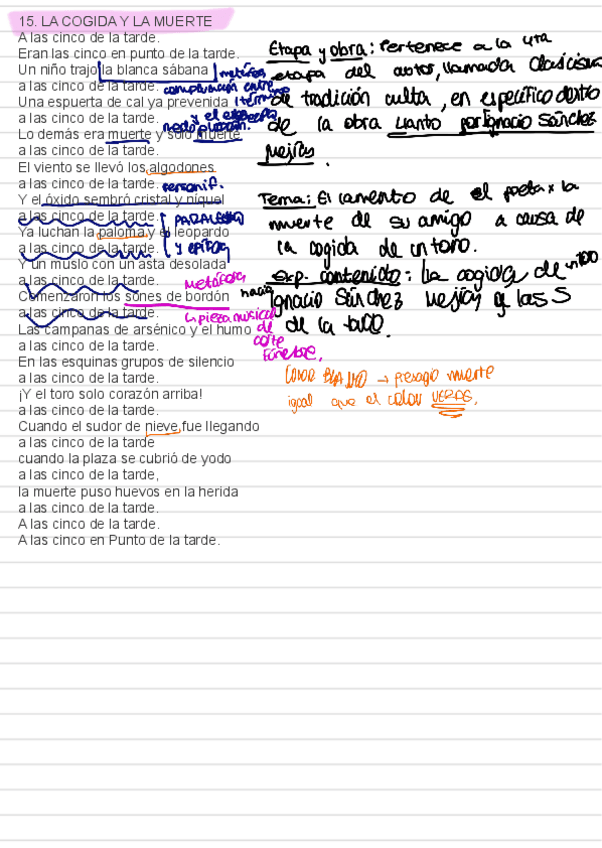 15. LA COGIDA Y LA MUERTE
A las cinco de la tarde.
Eran las cinco en punto de la tarde.
Un niño trajo la blanca sábana
a las cinco de la tarde.
Una espuerta de cal ya prevenida
a las cinco de la tarde.
Lo demás era muerte y solo muerte
a las cinco de la tarde.
El viento se llevó los algodones
a las cinco de la tarde.
Y el óxido sembró cristal y níquel
a las cinco de la tarde.
Ya luchan la paloma y el leopardo
a las cinco de la tarde.
Y un muslo con un asta desolada
a las cinco de la tarde.
Comenzaron los sones de bordón
a las cinco de la tarde.
Las campanas de arsénico y el humo
a las cinco de la tarde.
En las esquinas grupos de silencio
a las cinco de la tarde.
¡Y el toro solo corazón arriba!
a las cinco de la tarde.
Cuando el sudor de nieve fue llegando
a las cinco de la tarde
cuando la plaza se cubrió de yodo
a las cinco de la tarde,
la muerte puso huevos en la herida
a las cinco de la tarde.
A las cinco de la tarde.
A las cinco en Punto de la tarde.
metáfora
comparación entre
término
y el
personif.
PARALELISMO
y epífora
metáfora
↳ pieza musical
de
corte
fúnebre.
Etapa y obra: Pertenece a la 4ta
etapa del autor, llamada
de tradición culta, en específico dentro
de la obra Llanto por Ignacio Sánchez
Mejías.
Tema: El lamento de el poeta x la
muerte de su amigo a causa de
la cogida de un toro.
Exp. contenido: La cogida de un toro
hacia Ignacio Sánchez Mejías a las 5
de la tarde.
COLOR BLANCO → presagio muerte
igual que el color VERDE.